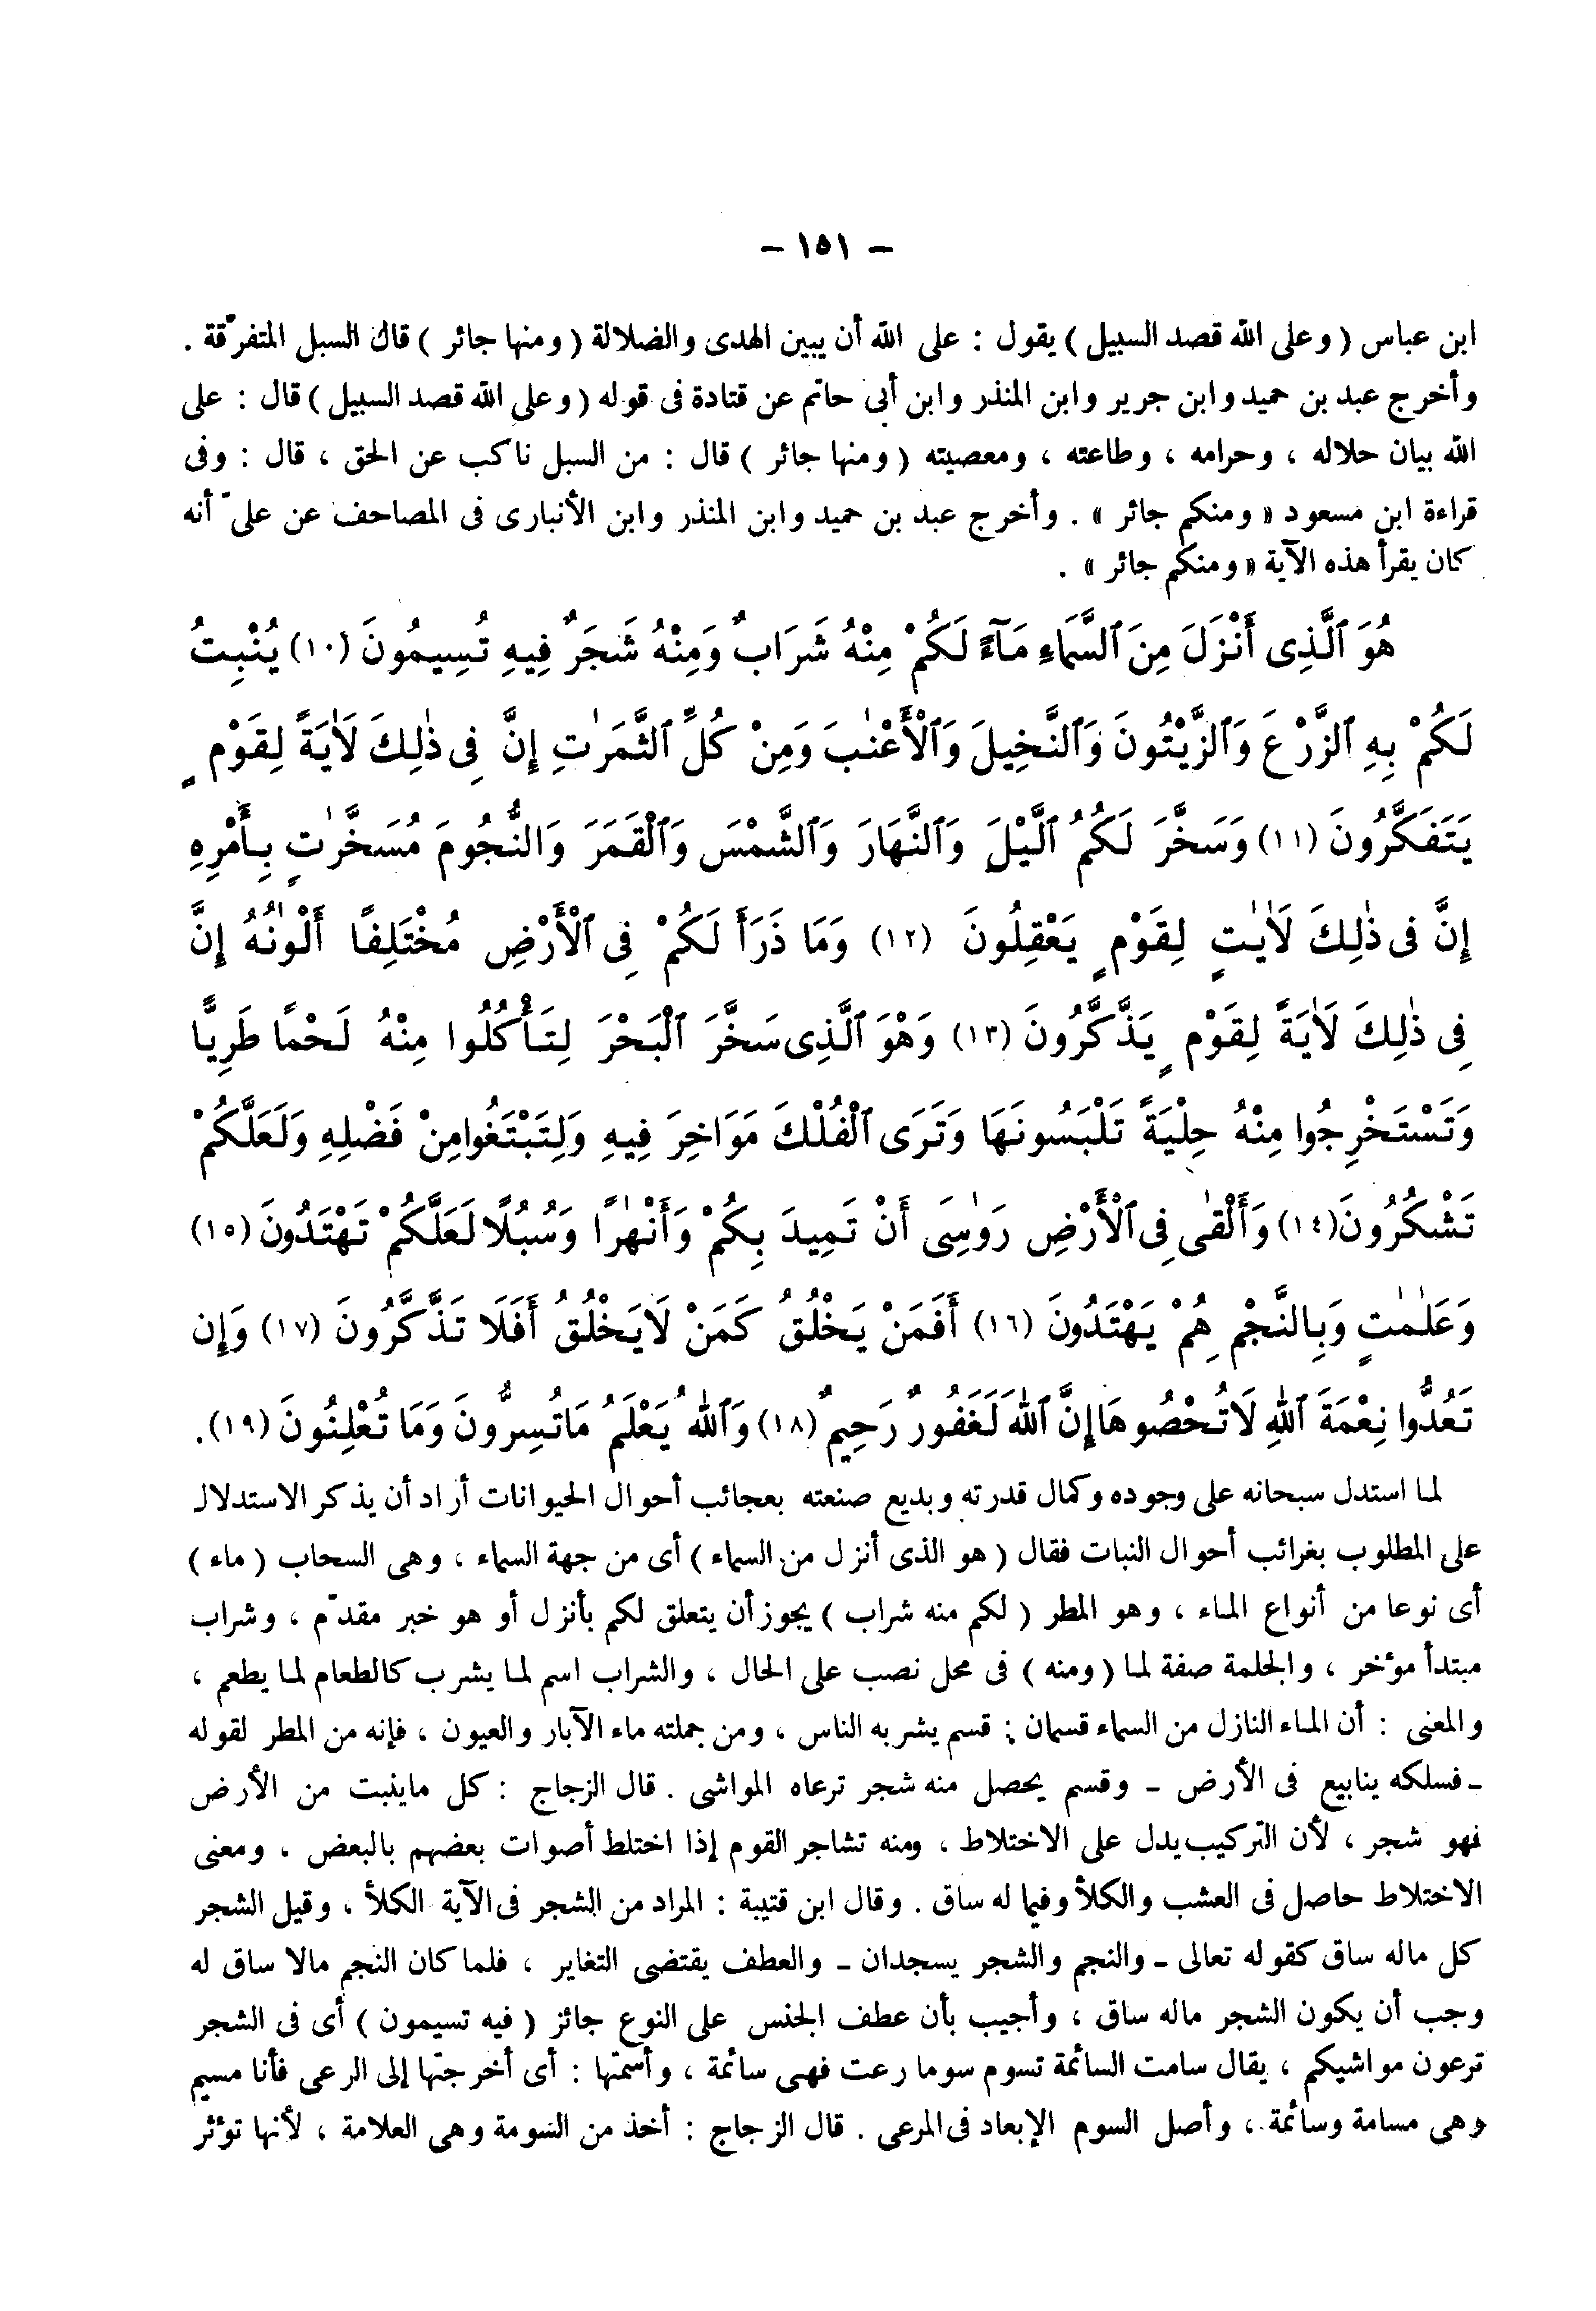 — ١٥١ —
ابن عباس ( وعلى الله قصد السبيل ) يقول : على الله أن يبين الهدى والضلالة ( ومنها جائر ) قال السبل المتفرّقة .
وأخرج عبد بن حميد وابن جرير وابن المنذر وابن أبى حاتم عن قتادة فى قوله ( وعلى الله قصد السبيل ) قال : على
الله بيان حلاله ، وحرامه ، وطاعته ، ومعصيته ( ومنها جائر ) قال : من السبل ناكب عن الحق ، قال : وفى
قراءة ابن مسعود « ومنكم جائر » . وأخرج عبد بن حميد وابن المنذر وابن الأنبارى فى المصاحف عن علىّ أنه
كان يقرأ هذه الآية « ومنكم جائر » .
هُوَ ٱلَّذِى أَنْزَلَ مِنَ ٱلسَّمَاءِ مَآءً لَكُمْ مِنْهُ شَرَابٌ وَمِنْهُ شَجَرٌ فِيهِ تُسِيمُونَ (١٠) يُنْبِتُ
لَكُمْ بِهِ ٱلزَّرْعَ وَٱلزَّيْتُونَ وَٱلنَّخِيلَ وَٱلْأَعْنٰبَ وَمِنْ كُلِّ ٱلثَّمَرٰتِ إِنَّ فِى ذٰلِكَ لَأٰيَةً لِقَوْمٍ
يَتَفَكَّرُونَ (١١) وَسَخَّرَ لَكُمُ ٱلَّيْلَ وَٱلنَّهَارَ وَٱلشَّمْسَ وَٱلْقَمَرَ وَالنُّجُومَ مُسَخَّرٰتٍ بِأَمْرِهِ
إِنَّ فِى ذٰلِكَ لَأٰيٰتٍ لِقَوْمٍ يَعْقِلُونَ (١٢) وَمَا ذَرَأَ لَكُمْ فِى ٱلْأَرْضِ مُخْتَلِفًا أَلْوٰنُهُ إِنَّ
فِى ذٰلِكَ لَأٰيَةً لِقَوْمٍ يَذَّكَّرُونَ (١٣) وَهْوَ ٱلَّذِى سَخَّرَ ٱلْبَحْرَ لِتَأْكُلُوا مِنْهُ لَحْمًا طَرِيًّا
وَتَسْتَخْرِجُوا مِنْهُ حِلْيَةً تَلْبَسُونَهَا وَتَرَى ٱلْفُلْكَ مَوَاخِرَ فِيهِ وَلِتَبْتَغُوا مِنْ فَضْلِهِ وَلَعَلَّكُمْ
تَشْكُرُونَ (١٤) وَأَلْقٰى فِى ٱلْأَرْضِ رَوٰسِىَ أَنْ تَمِيدَ بِكُمْ وَأَنْهٰرًا وَسُبُلًا لَعَلَّكُمْ تَهْتَدُونَ (١٥)
وَعَلٰمٰتٍ وَبِالنَّجْمِ هُمْ يَهْتَدُونَ (١٦) أَفَمَنْ يَخْلُقُ كَمَنْ لَا يَخْلُقُ أَفَلَا تَذَّكَّرُونَ (١٧) وَإِن
تَعُدُّوا نِعْمَةَ ٱللهِ لَا تُحْصُوهَا إِنَّ ٱللهَ لَغَفُورٌ رَحِيمٌ (١٨) وَٱللهُ يَعْلَمُ مَا تُسِرُّونَ وَمَا تُعْلِنُونَ (١٩).
لما استدل سبحانه على وجوده وكمال قدرته وبديع صنعته بعجائب أحوال الحيوانات أراد أن يذكر الاستدلال
على المطلوب بغرائب أحوال النبات فقال ( هو الذى أنزل من السماء ) أى من جهة السماء ، وهى السحاب ( ماء )
أى نوعا من أنواع الماء ، وهو المطر ( لكم منه شراب ) يجوز أن يتعلق لكم بأنزل أو هو خبر مقدّم ، وشراب
مبتدأ مؤخر ، والجلمة صفة لما ( ومنه ) فى محل نصب على الحال ، والشراب اسم لما يشرب كالطعام لما يطعم ،
والمعنى : أن الماء النازل من السماء قسمان : قسم يشربه الناس ، ومن جملته ماء الآبار والعيون ، فإنه من المطر لقوله
ـ فسلكه ينابيع فى الأرض ـ وقسم يحصل منه شجر ترعاه المواشى . قال الزجاج : كل ماينبت من الأرض
فهو شجر ، لأن التركيب يدل على الاختلاط ، ومنه تشاجر القوم إذا اختلط أصوات بعضهم بالبعض ، ومعنى
الاختلاط حاصل فى العشب والكلأ وفيما له ساق . وقال ابن قتيبة : المراد من الشجر فى الآية الكلأ ، وقيل الشجر
كل ماله ساق كقوله تعالى ـ والنجم والشجر يسجدان ـ والعطف يقتضى التغاير ، فلما كان النجم مالا ساق له
وجب أن يكون الشجر ماله ساق ، وأجيب بأن عطف الجنس على النوع جائز ( فيه تسيمون ) أى فى الشجر
ترعون مواشيكم ، يقال سامت السائمة تسوم سوما رعت فهى سائمة ، وأسمتها : أى أخرجتها إلى الرعى فأنا مسيم
وهى مسامة وسائمة ، وأصل السوم الإبعاد فى المرعى . قال الزجاج : أخذ من السومة وهى العلامة ، لأنها تؤثر